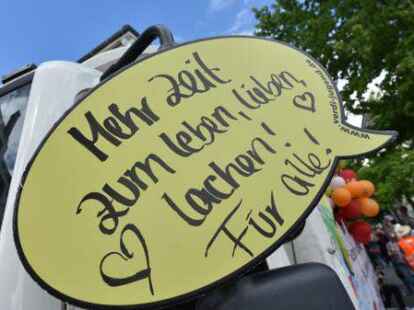 Mehr Zeit
zum leben, lieben,
lachen!
Für alle!